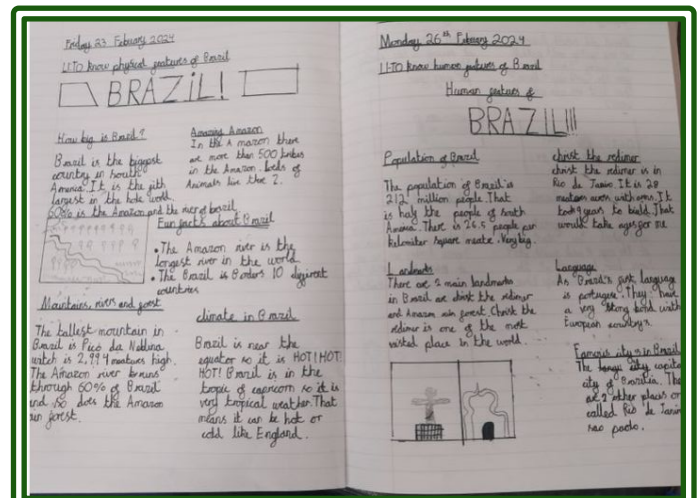 Friday 23 February 2024
LI-TO know physical features of Brazil
BRAZIL!
How big is Brazil?
Brazil is the biggest
country in south
America. It is the fith
largest in the hole world.
60% is the Amazon and the river of brazil
Amazing Amazon
In the Amazon there
are more than 500 tribes
in the Amazon. Lods of
Animals live there 2.
Fun facts about Brazil
• The Amazon river is the
longest river in the world
• The Brazil is Borders 10 different
countries
Mountains, rivers and forest
The tallest mountain in
Brazil is Pico da Neblina
witch is 2,994 meators high.
The Amazon river bruns
through 60% of Brazil
and so does the Amazon
ran forest.
climate in Brazil
Brazil is near the
equator so it is HOT! HOT!
HOT! Brazil is in the
tropic of capricorn so it is
very tropical weather. That
means it can be hot or
cold like England.
Monday 26th Febuary 2024
LI-TO know human features of Brazil
Human features of
BRAZIL!!!
Population of Brazil
The population of Brazil is
212 million people. That
is half the people of south
America. There is 26.5 people per
kelomiter square meate. Very big.
christ the redimer
christ the redimer is in
Rio de Janiro. It is 28
meatoers even with arms. It
took 9 years to biuld. That
would take ages for me
Landmarks
There are 2 main landmarks
in Brazil are christ the redimer
and Amazon rain forest. Christ the
redimer is one of the most
visited place in the world.
Language
As Brazil's first language
is portugese. They have
a very stong bond with
European country's.
Famous city's in Brazil
The capita
city of Brasilia. The
are 2 other places or
called Rio de Janiro
sao paolo.